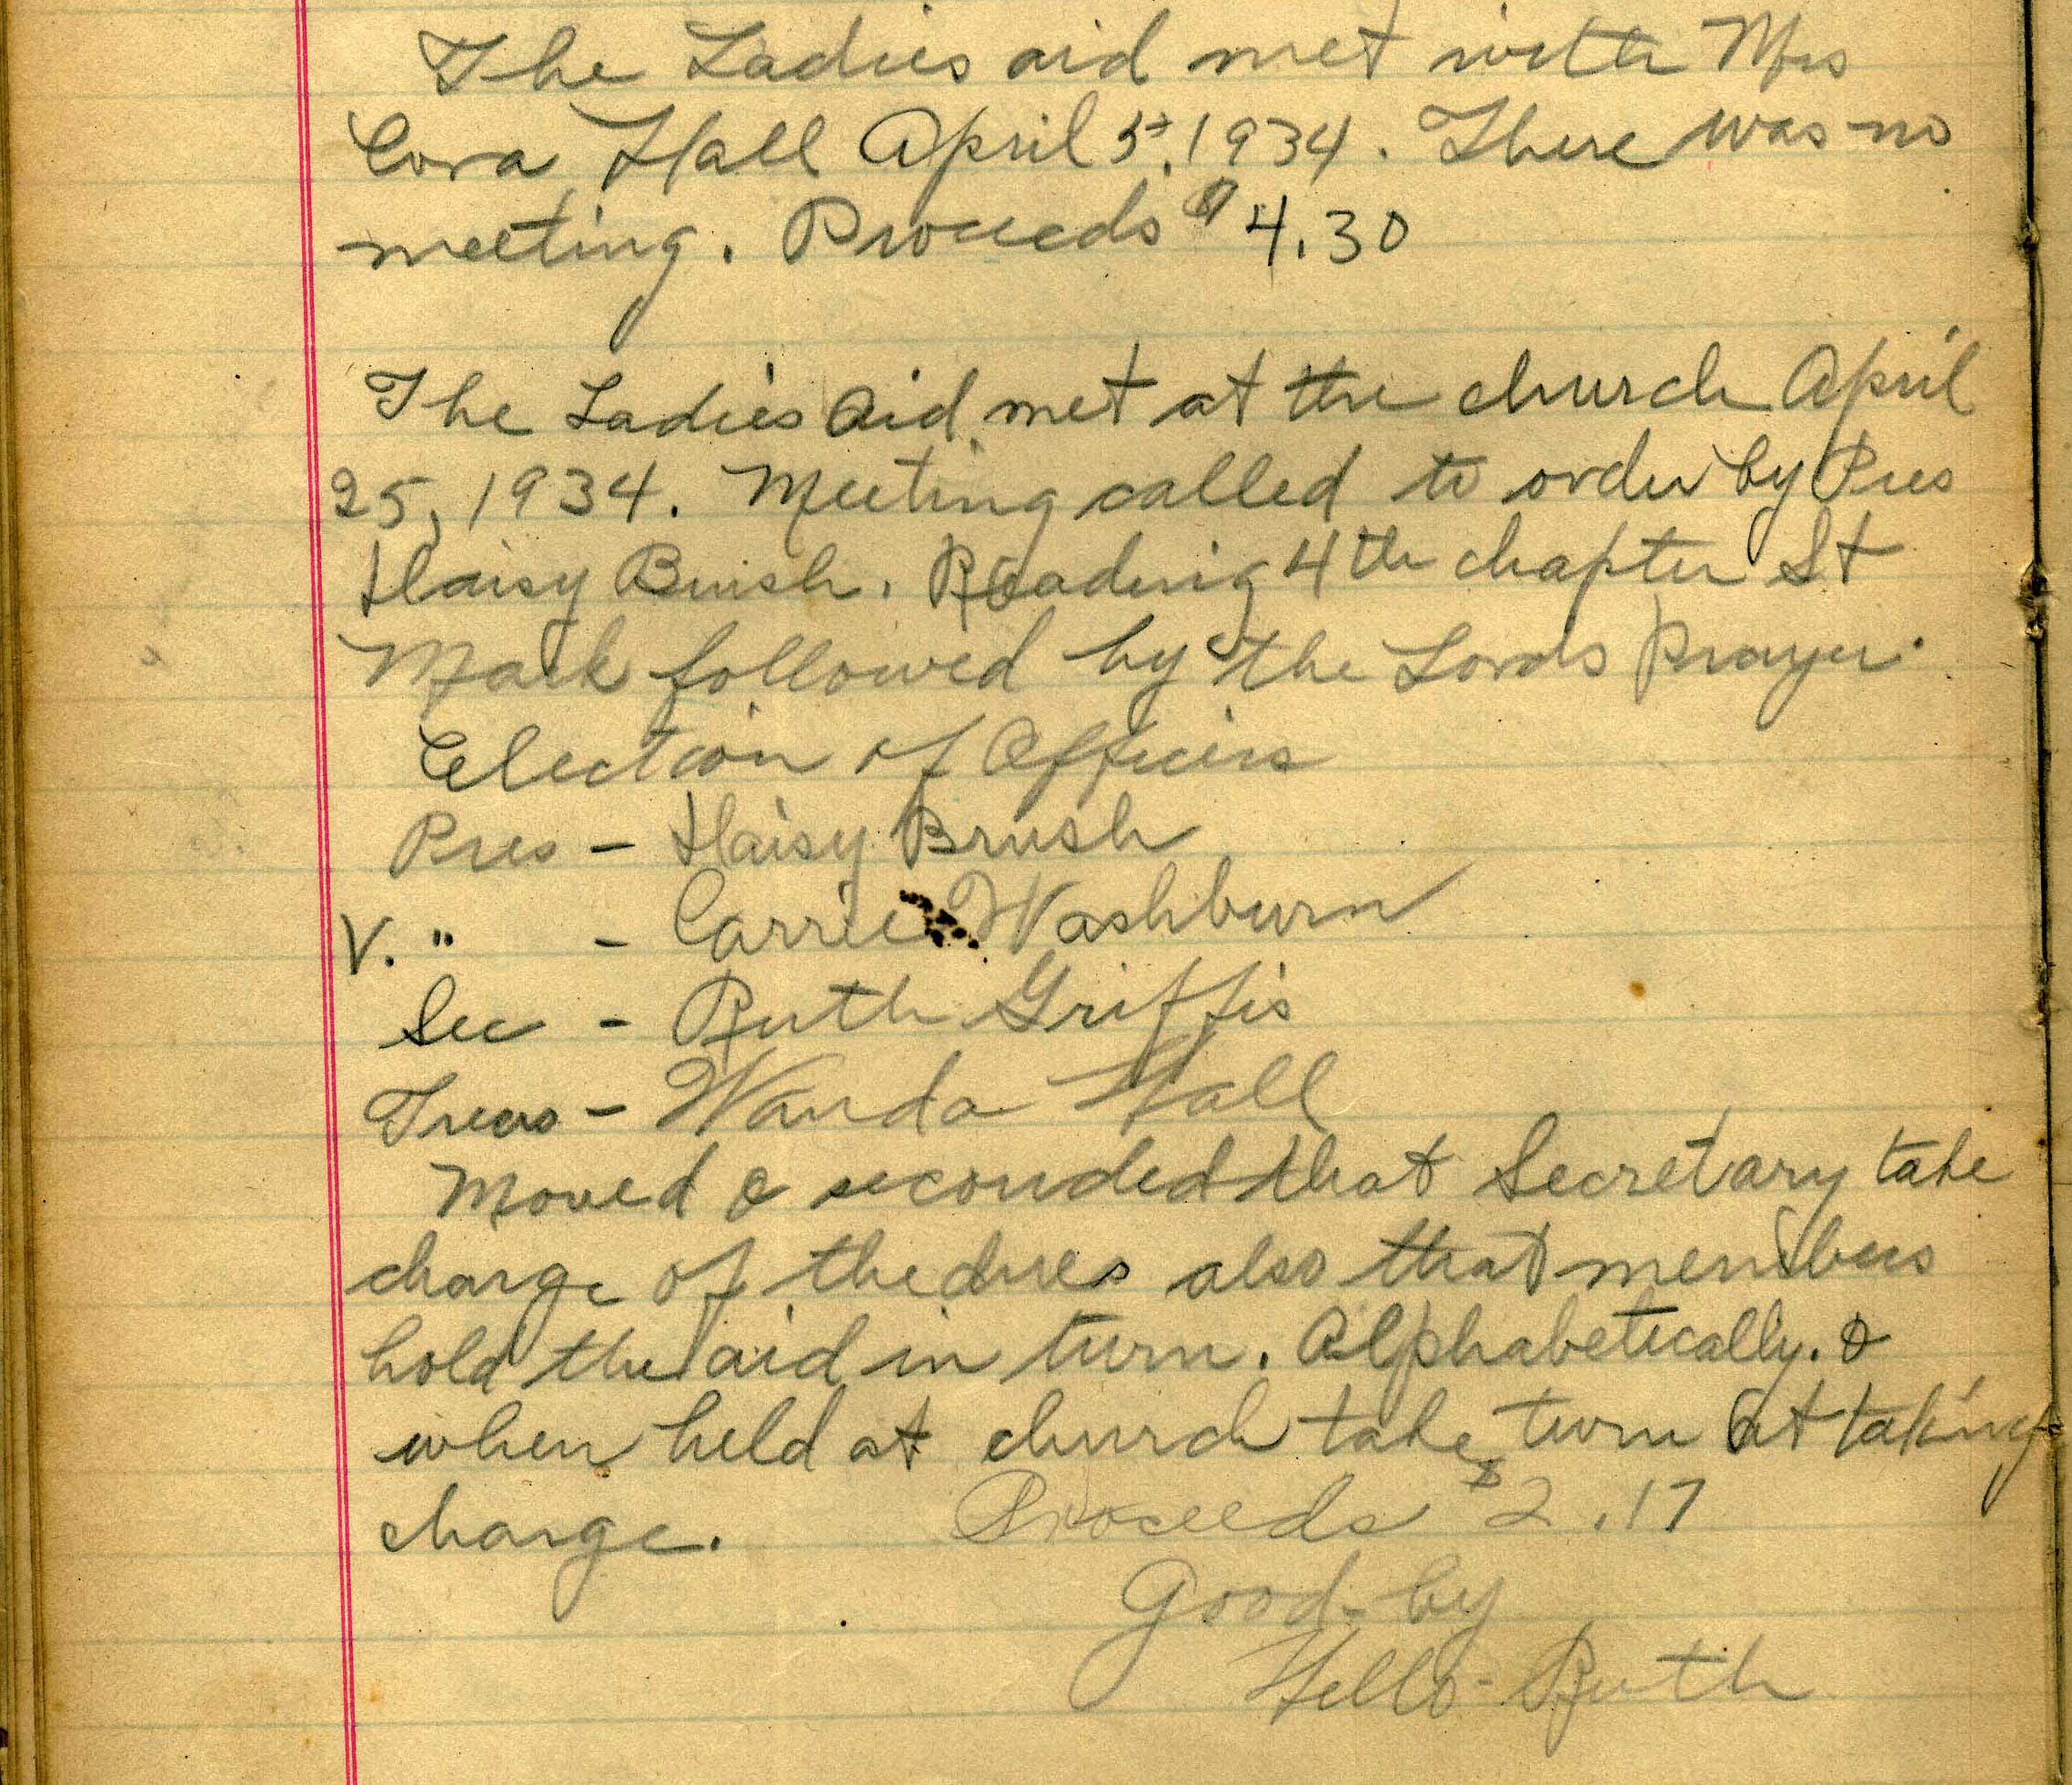 The Ladies aid met with Mrs
Cora Hall April 5, 1934. There was no
meeting. Proceeds $4.30
The Ladies Aid met at the church April
25, 1934. Meeting called to order by Pres
Daisy Brush. Reading 4th chapter St
Mark followed by the Lords Prayer.
Election of Officers
Pres - Daisy Brush
V. " - Carrie Washburn
Sec - Ruth Griffis
Treas - Wanda Hall
Moved & seconded that Secretary take
charge of the dues also that members
hold the aid in turn. Alphabetically. &
when held at church take turn at taking
charge. Proceeds $2.17
Good-by
Hello - Ruth